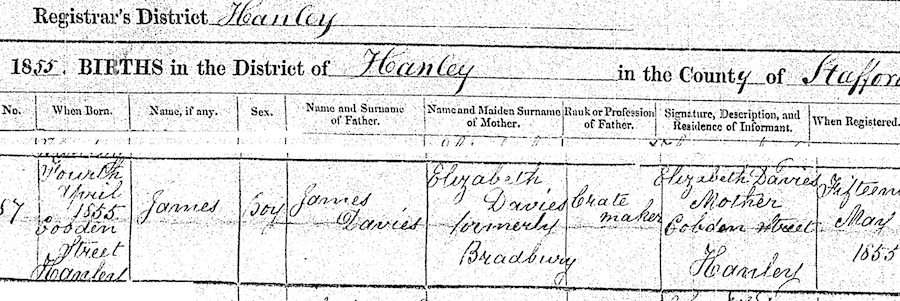 Registrar's District Hanley
1855. BIRTHS in the District of Hanley in the County of Stafford
No. When Born. Name, if any. Sex. Name and Surname of Father. Name and Maiden Surname of Mother. Rank or Profession of Father. Signature, Description, and Residence of Informant. When Registered.
57
Fourth
April
1855
Cobden
Street
Hanley
James
Boy
James
Davies
Elizabeth
Davies
formerly
Bradbury
Crate
maker
Elizabeth Davies
Mother
Cobden Street
Hanley
Fifteenth
May
1855